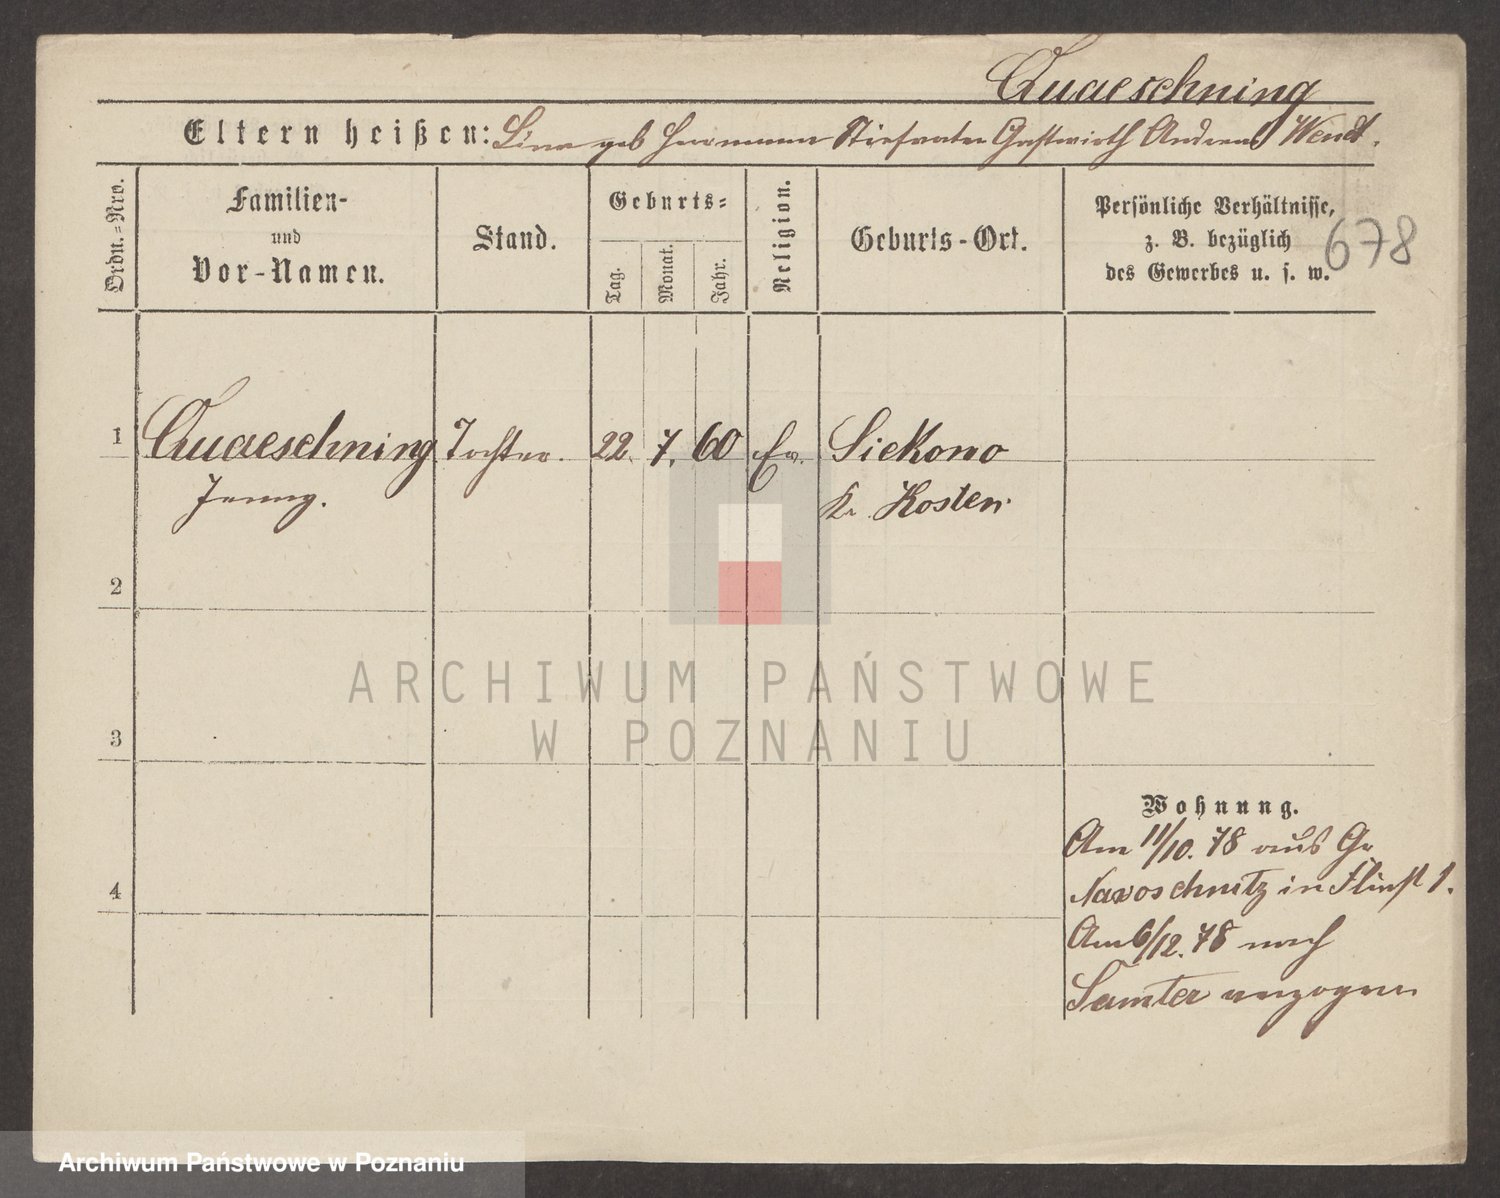 Quaeschning
Eltern heißen: Lina geb Herrmann Stiefvater Gastwirth Andreas Wendt.
Ordn.=Nro.
Familien-
und
Vor-Namen.
Stand.
Geburts=
Tag.
Monat.
Jahr.
Religion.
Geburts-Ort.
Persönliche Verhältnisse,
z. B. bezüglich
des Gewerbes u. s. w.
678
1 Quaeschning Tochter. 22. 7. 60 Ev. Siekowo
Jenny. Kr. Kosten
2
3
4
Wohnung.
Am 11/10. 78 aus Gr
in 1.
Am 6/12. 78 nach
Samter verzogen
ARCHIWUM PAŃSTWOWE
W POZNANIU
Archiwum Państwowe w Poznaniu